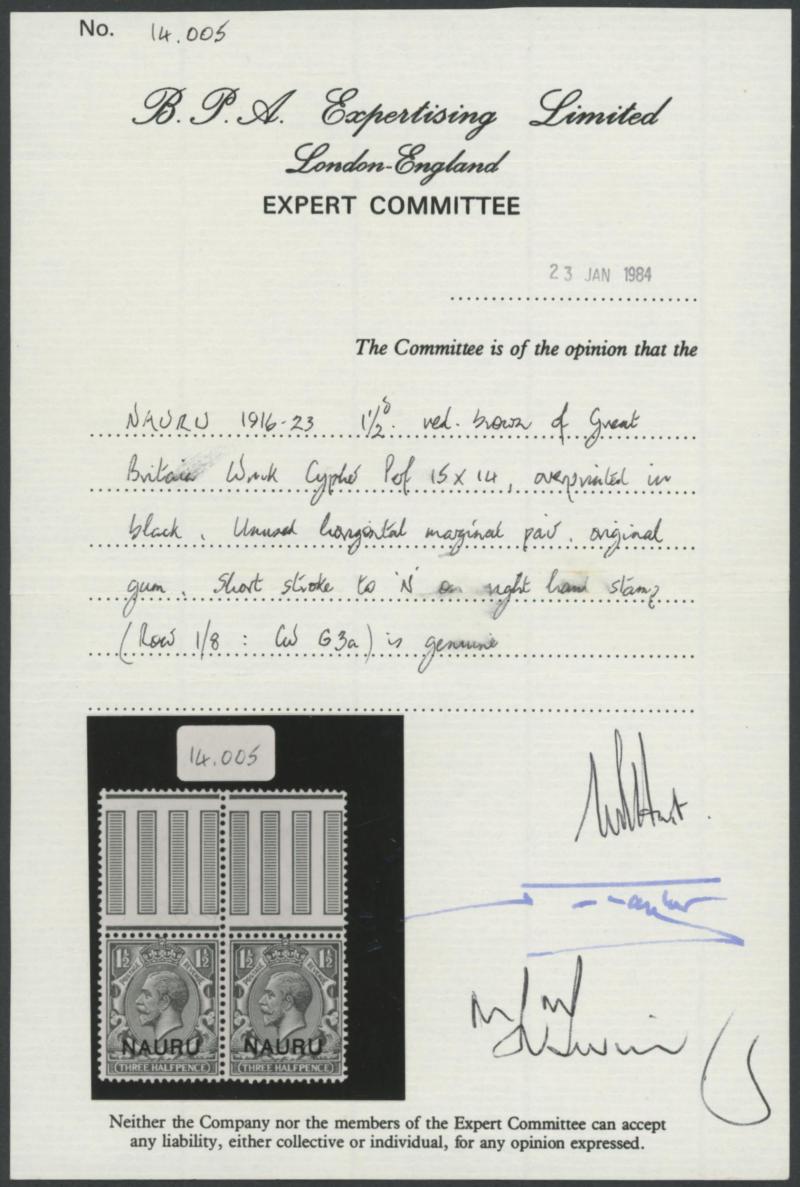 No. 14.005
B. P. A. Expertising Limited
London-England
EXPERT COMMITTEE
23 JAN 1984
The Committee is of the opinion that the
NAURU 1916-23 1½d. red-brown of Great
Britain Wmk Cypher Perf 15 x 14, overprinted in
black. Unused horizontal marginal pair. original
gum. Short stroke to 'N' on right hand stamp
(Row 1/8 : CW G3a) is genuine
14.005
1½ 1½ 1½ 1½
POSTAGE REVENUE POSTAGE REVENUE
NAURU NAURU
THREE HALFPENCE THREE HALFPENCE
Neither the Company nor the members of the Expert Committee can accept
any liability, either collective or individual, for any opinion expressed.